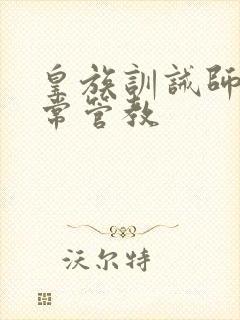 皇族訓誡師
常管教
沃尔特